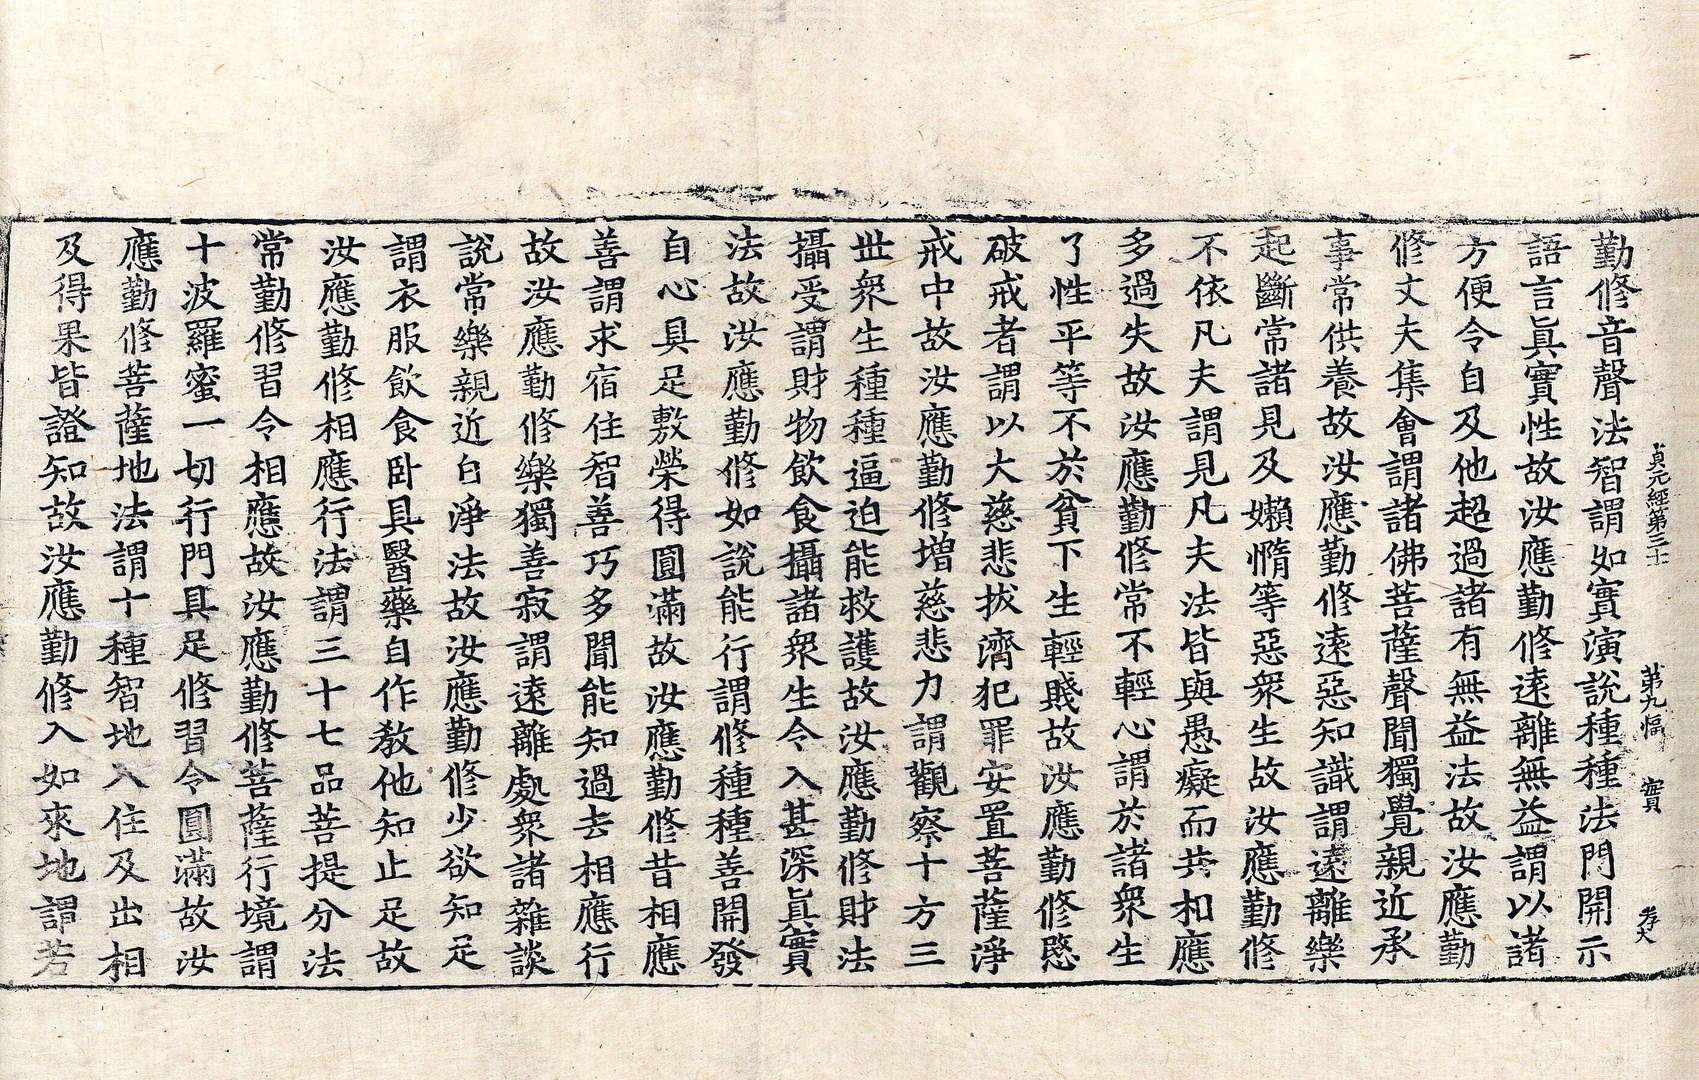 貞元經第三十　第九幅　寳　孝大
勤修音聲法智謂如實演說種種法門開示
語言眞實性故汝應勤修遠離無益謂以諸
方便令自及他超過諸有無益法故汝應勤
修丈夫集會謂諸佛菩薩聲聞獨覺親近承
事常供養故汝應勤修遠惡知識謂遠離樂
起斷常諸見及嬾惰等惡衆生故汝應勤修
不依凡夫謂見凡夫法皆與愚癡而共相應
多過失故汝應勤修常不輕心謂於諸衆生
了性平等不於貧下生輕賤故汝應勤修愍
破戒者謂以大慈悲拔濟犯罪安置菩薩淨
戒中故汝應勤修增慈悲力謂觀察十方三
世衆生種種逼迫能救護故汝應勤修財法
攝受謂財物飲食攝諸衆生令入甚深眞實
法故汝應勤修如說能行謂修種種善開發
自心具足敷榮得圓滿故汝應勤修昔相應
善謂求宿住智善巧多聞能知過去相應行
故汝應勤修樂獨善寂謂遠離處衆諸雜談
說常樂親近白淨法故汝應勤修少欲知足
謂衣服飲食臥具醫藥自作教他知止足故
汝應勤修相應行法謂三十七品菩提分法
常勤修習令相應故汝應勤修菩薩行境謂
十波羅蜜一切行門具足修習令圓滿故汝
應勤修菩薩地法謂十種智地入住及出相
及得果皆證知故汝應勤修入如來地謂若